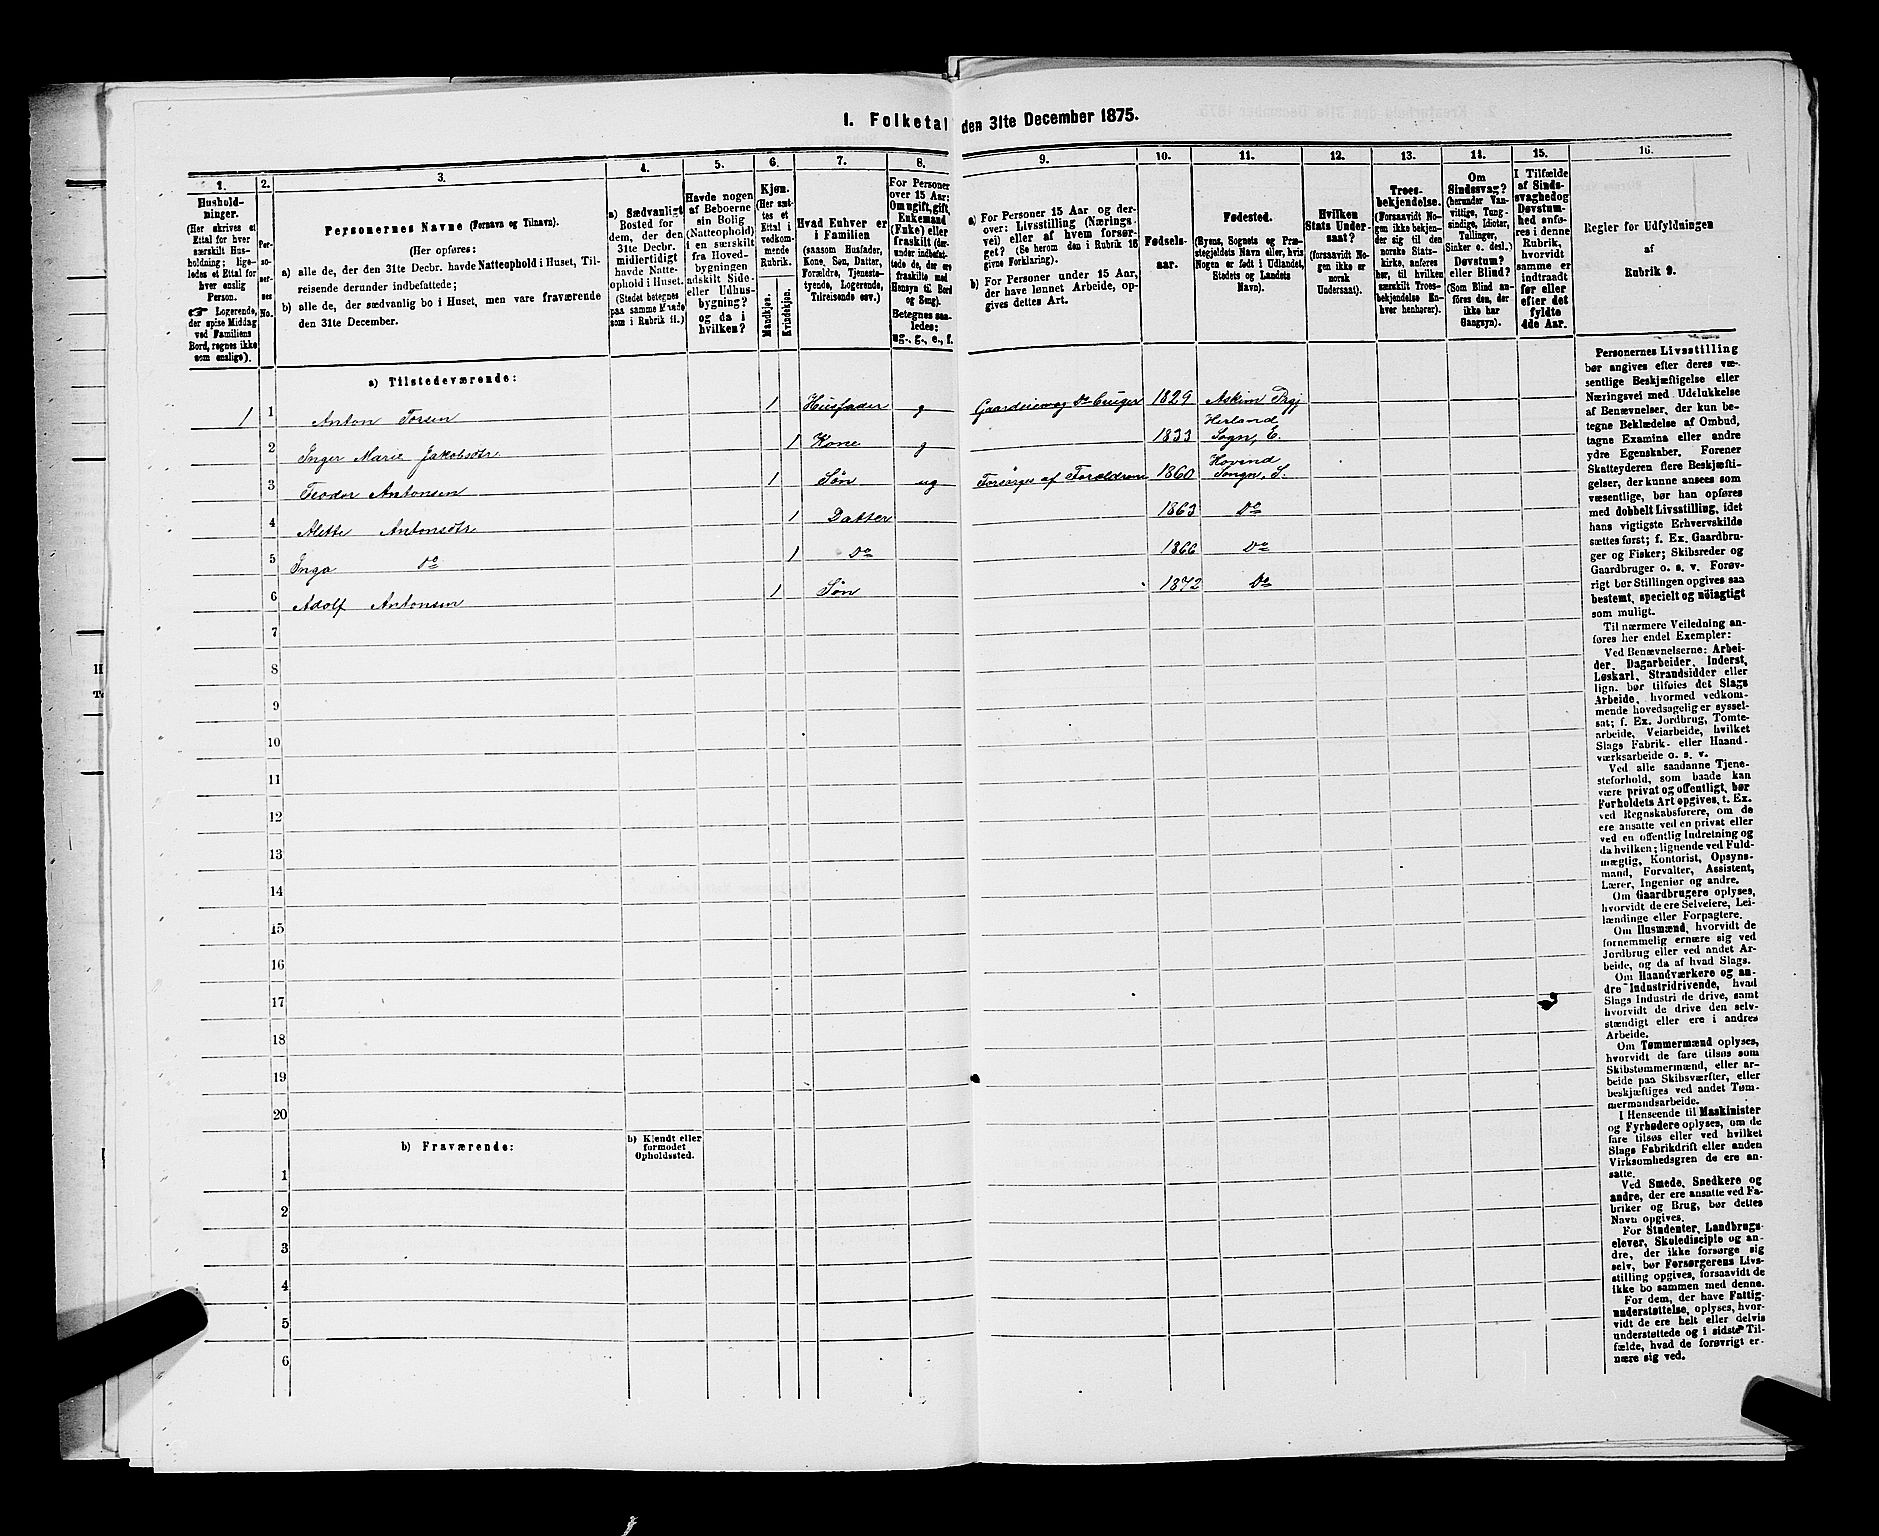 1. Folketal den 31te December 1875.
1.
Hushold-
ninger.
(Her skrives et
Ettal for hver
særskilt Hus-
holdning; lige-
ledes et Ettal for
hver enslig
Person.
Logerende,
der spise Middag
ved Familiens
Bord, regnes ikke
som enslige).
2.
Per-
so-
ner-
nes
No.
3.
Personernes Navne (Fornavn og Tilnavn).
(Her opføres:
a) alle de, der den 31te Decbr. havde Natteophold i Huset, Til-
reisende derunder indbefattede;
b) alle de, der sædvanlig bo i Huset, men vare fraværende
den 31te December.
4.
a) Sædvanligt
Bosted for
dem, der den
31te Decbr.
midlertidigt
havde Natte-
ophold i Huset.
(Stedet betegnes
paa samme Maade
som i Rubrik 11.)
5.
Havde nogen
af Beboerne
sin Bolig
(Natteophold)
i en særskilt
fra Hoved-
bygningen
adskilt Side-
eller Udhus-
bygning?
og da i
hvilken?
6.
Kjøn.
(Her sæt-
tes et
Ettal i
vedkom-
mende
Rubrik.
Mandkjøn.
Kvindekjøn.
7.
Hvad Enhver er
i Familien
(saasom Husfader,
Kone, Søn, Datter,
Forældre, Tjeneste-
tyende, Logerende,
Tilreisende osv.)
8.
For Personer
over 15 Aar:
Om ugift, gift,
Enkemand
(Enke) eller
fraskilt (der-
under indbefat-
tede de, der ere
fraskilte med
Hensyn til Bord
og Seng).
Betegnes saa-
ledes:
ug., g., e., f.
9.
a) For Personer 15 Aar og der-
over: Livsstilling (Nærings-
vei) eller af hvem forsør-
get? (Se herom den i Rubrik 16
givne Forklaring).
b) For Personer under 15 Aar,
der have lønnet Arbeide, op-
gives dettes Art.
10.
Fødsels-
aar.
11.
Fødested.
(Byens, Sognets og Præ-
stegjeldets Navn eller, hvis
Nogen er født i Udlandet,
Stedets og Landets
Navn).
12.
Hvilken
Stats Under-
saat?
(forsaavidt No-
gen ikke er
norsk
Undersaat).
13.
Troes-
bekjendelse.
(Forsaavidt No-
gen ikke bekjen-
der sig til den
norske Stats-
kirke, anføres
her, til hvilken
særskilt Troes-
bekjendelse En-
hver henhører).
14.
Om
Sindssvag?
(herunder Van-
vittige, Tung-
sindige, Idioter,
Tullinger,
Sinker o. desl.)
Døvstum?
eller Blind?
(Som Blind an-
føres den, der
ikke har
Gangsyn).
15.
I Tilfælde
af Sinds-
svaghed og
Døvstum-
hed anfø-
res i denne
Rubrik,
hvorvidt
samme er
indtraadt
før eller
efter det
fyldte
4de Aar.
16.
Regler for Udfyldningen
af
Rubrik 9.
a) Tilstedeværende:
1 1 Anton Torsen 1 Husfader g Gaardeier og Do bruger 1829 Askim Prgj
2 Inger Marie Jakobsdtr 1 Kone g 1833 Herland Sogn, E.
3 Teodor Antonsen 1 Søn ug Forsørges af Forældrene 1860 Hovind Songn, S.
4 Alette Antonsdtr 1 Datter 1863 Do
5 Inga Do 1 Do 1866 Do
6 Adolf Antonsen 1 Søn 1872 Do
7
8
9
10
11
12
13
14
15
16
17
18
19
20
b) Fraværende:
b) Kjendt eller
formodet
Opholdssted.
1
2
3
4
5
6
Personernes Livsstilling
bør angives efter deres væ-
sentlige Beskjæftigelse eller
Næringsvei med Udelukkelse
af Benævnelser, der kun be-
tegne Beklædelse af Ombud,
tagne Examina eller andre
ydre Egenskaber. Forener
Skatteyderen flere Beskjæfti-
gelser, der kunne ansees som
væsentlige, bør han opføres
med dobbelt Livsstilling, idet
hans vigtigste Erhvervskilde
sættes først; f. Ex. Gaardbru-
ger og Fisker; Skibsreder og
Gaardbruger o. s. v. Forøv-
rigt bør Stillingen opgives saa
bestemt, specielt og nøiagtigt
som muligt.
Til nærmere Veiledning an-
føres her endel Exempler:
Ved Benævnelserne: Arbei-
der, Dagarbeider, Inderst,
Løskarl, Strandsidder eller
lign. bør tilføies det Slags
Arbeide, hvormed vedkom-
mende hovedsagelig er syssel-
sat; f. Ex. Jordbrug, Tomte-
arbeide, Veiarbeide, hvilket
Slags Fabrik- eller Haand-
værksarbeide o. s. v.
Ved alle saadanne Tjene-
steforhold, som baade kan
være privat og offentligt, bør
Forholdets Art opgives, t. Ex.
ved Regnskabsførere, om de
ere ansatte ved en privat eller
ved en offentlig Indretning og
da hvilken; lignende ved Fuld-
mægtig, Kontorist, Opsyns-
mand, Forvalter, Assistent,
Lærer, Ingeniør og andre.
Om Gaardbrugere oplyses,
hvorvidt de ere Selveiere, Lei-
lændinge eller Forpagtere.
Om Husmænd, hvorvidt de
fornemmelig ernære sig ved
Jordbrug eller ved andet Ar-
beide, og da af hvad Slags.
Om Haandværkere og an-
dre Industridrivende, hvad
Slags Industri de drive, samt
hvorvidt de drive den selv-
stændigt eller ere i andres
Arbeide.
Om Tømmermænd oplyses,
hvorvidt de fare tilsøs som
Skibstømmermænd, eller ar-
beide paa Skibsværfter, eller
beskjæftiges ved andet Tøm-
mermandsarbeide.
I Henseende til Maskinister
og Fyrbødere oplyses, om de
fare tilsøs eller ved hvilket
Slags Fabrikdrift eller anden
Virksomhedsgren de ere an-
satte.
Ved Smede, Snedkere og
andre, der ere ansatte ved Fa-
briker og Brug, bør dettes
Navn opgives.
For Studenter, Landbrugs-
elever, Skoledisciple og an-
dre, der ikke forsørge sig
selv, bør Forsørgerens Livs-
stilling opgives, forsaavidt de
ikke bo sammen med denne.
For dem, der have Fattig-
understøttelse, oplyses, hvor-
vidt de ere helt eller delvis
understøttede og i sidste Til-
fælde, hvad de forøvrigt er-
nære sig ved.